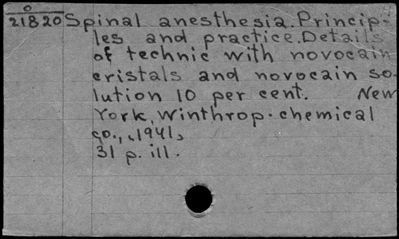 o
21820 Spinal anesthesia. Princip-
les and practice. Details
of technic with novocain
cristals and novocain so-
lution 10 per cent. New
York, Winthrop. chemical
co., 1941,
31 p. ill.